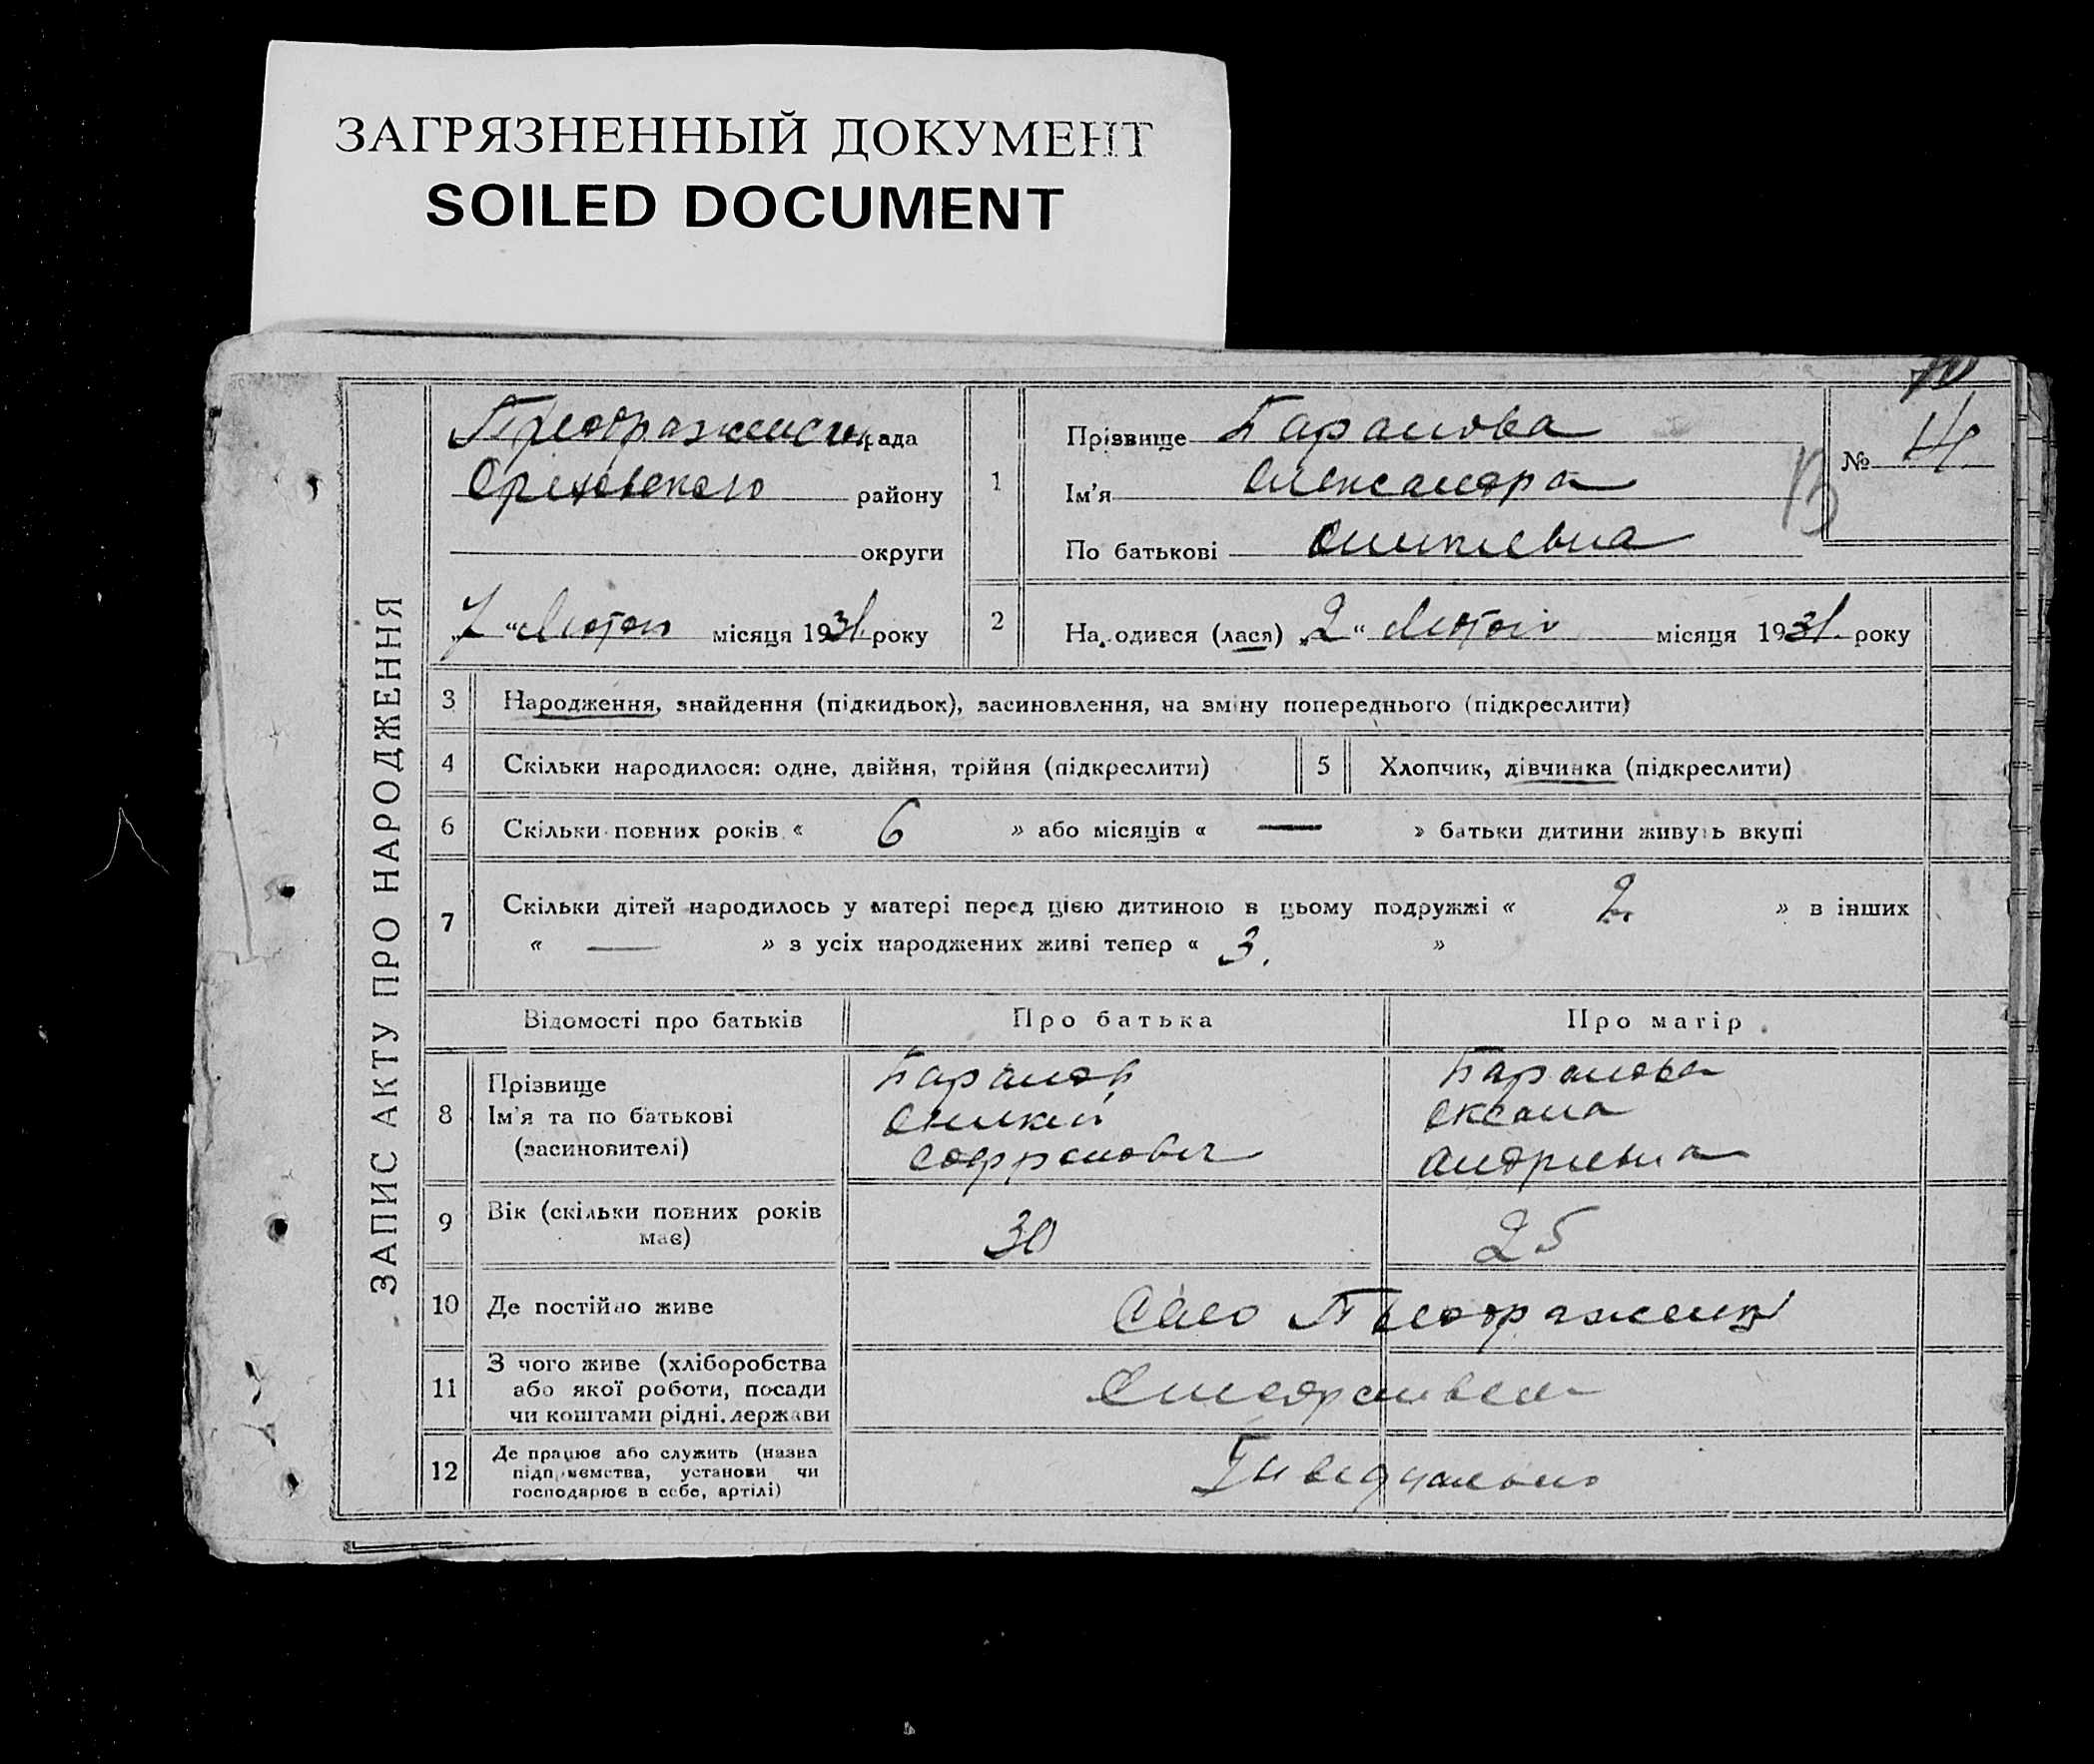 ЗАГРЯЗНЕННЫЙ ДОКУМЕНТ
SOILED DOCUMENT
ЗАПИС АКТУ ПРО НАРОДЖЕННЯ
рада
району
округи
7 місяця 1931 року
1
Прізвище Баранова
Ім'я Олександра
По батькові
№ 14
2 На одився (лася) „2“ місяця 1931 року
3 Народження, знайдення (підкидьок), засиновлення, на зміну попереднього (підкреслити)
4 Скільки народилося: одне, двійня, трійня (підкреслити) 5 Хлопчик, дівчинка (підкреслити)
6 Скільки повних років « 6 » або місяців « — » батьки дитини живуть вкупі
7 Скільки дітей народилось у матері перед цією дитиною в цьому подружжі « 2 » в інших
« — » з усіх народжених живі тепер « 3. »
Відомості про батьків Про батька Про матір
8 Прізвище Баранов Баранова
Ім'я та по батькові Оксана
(засиновителі) Андриевна
9 Вік (скільки повних років має) 30 25
10 Де постійно живе Село
11 З чого живе (хліборобства
або якої роботи, посади
чи коштами рідні, держави
12 Де працює або служить (назва
підприємства, установи чи
господарює в себе, артілі)